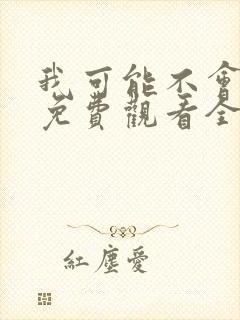 我可能不會
免費觀看全
紅塵愛